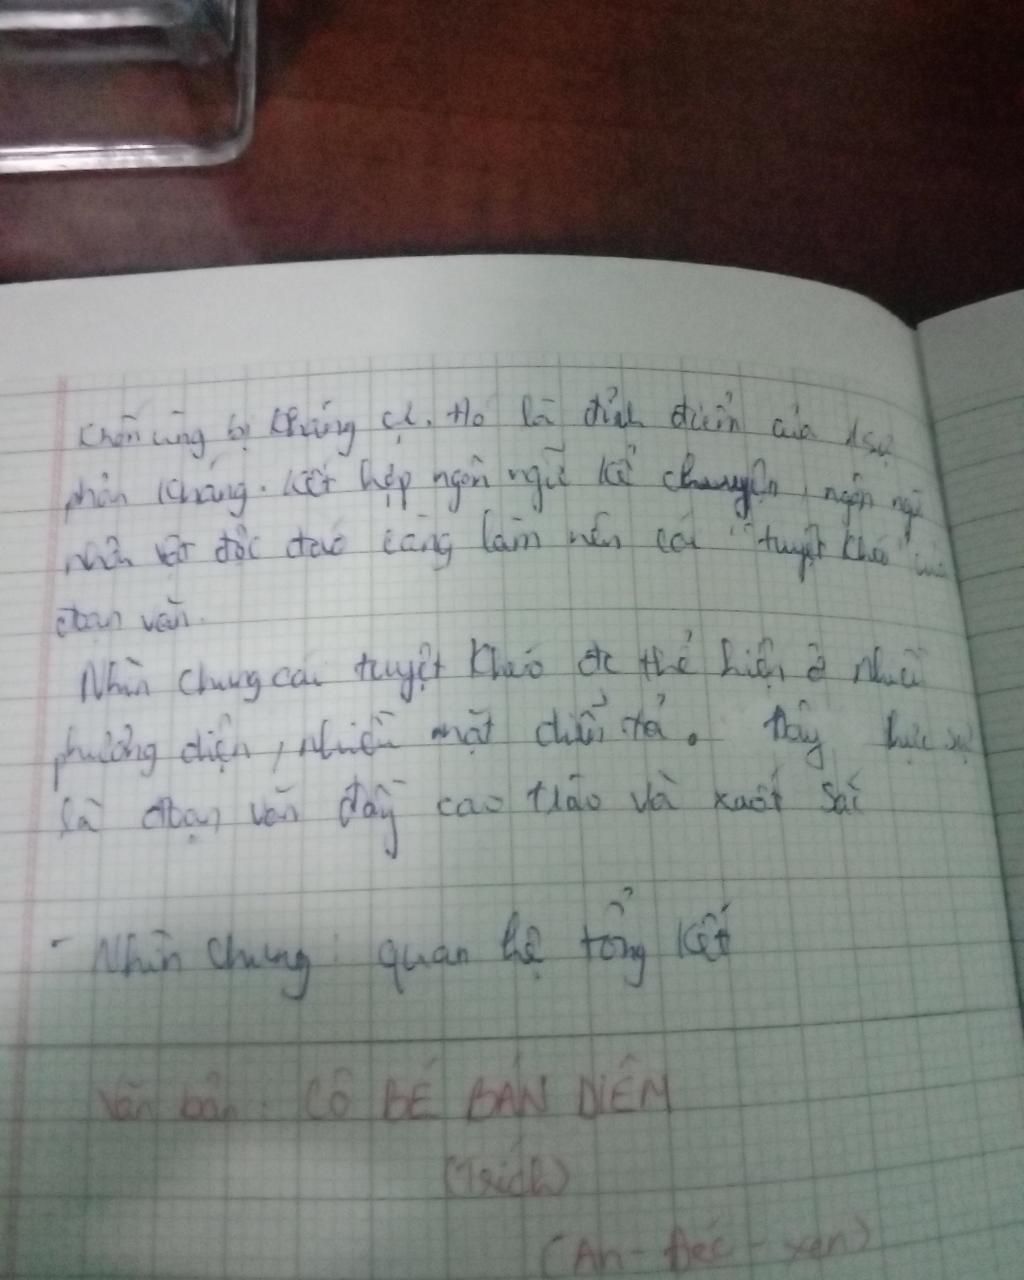 khốn cùng bị khủng cự. Họ là đỉnh điểm của sự
phản kháng. Kết hợp ngôn ngữ kể chuyện, ngôn ngữ
nhân vật độc đáo càng làm nên cái "tuyệt khéo" của
đoạn văn.
Nhìn chung cái tuyệt khéo đc thể hiện ở nhiều
phương diện, nhiều mặt diễn tả. Đây thực sự
là đoạn văn đầy cao trào và xuất sắc
- Nhìn chung: quan hệ tổng kết
Văn bản: CÔ BÉ BÁN DIÊM
(Trích)
(An-Đéc-xen)